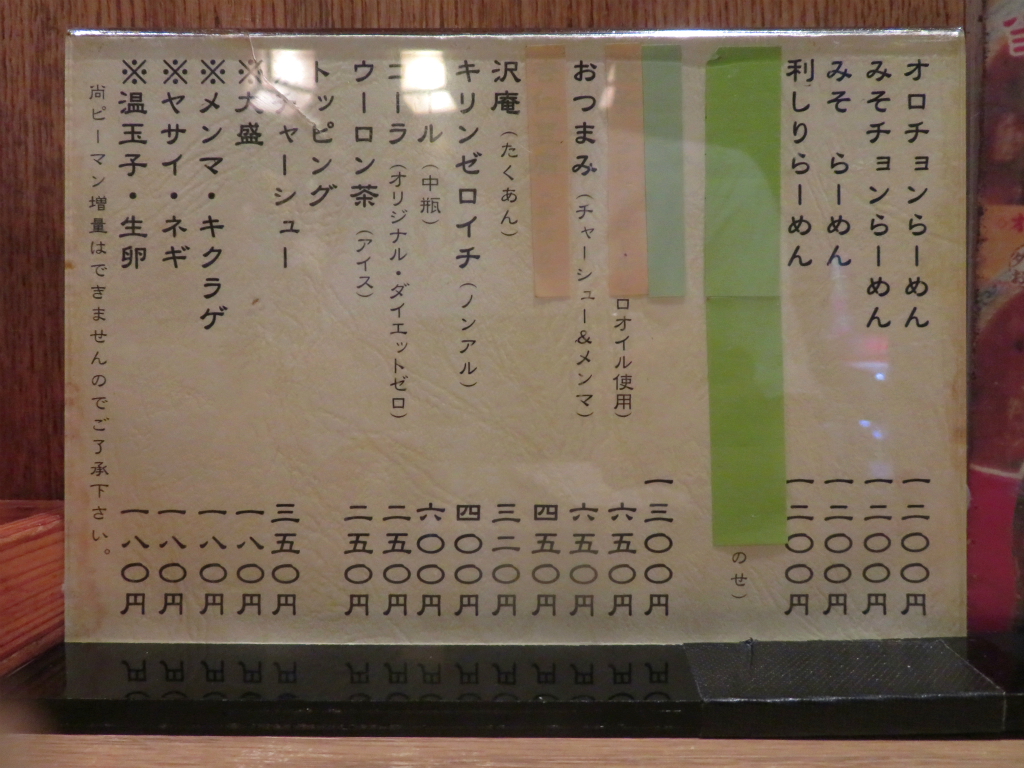 オロチョンらーめん 一二〇〇円
みそチョンらーめん 一二〇〇円
みそ らーめん 一二〇〇円
利しりらーめん 一二〇〇円
のせ）
一三〇〇円
ロオイル使用） 六五〇円
おつまみ（チャーシュー&メンマ） 六五〇円
四五〇円
沢庵（たくあん） 三二〇円
キリンゼロイチ（ノンアル） 四〇〇円
ビール（中瓶） 六〇〇円
コーラ（オリジナル・ダイエットゼロ） 二五〇円
ウーロン茶（アイス） 二五〇円
トッピング
※チャーシュー 三五〇円
※大盛 一八〇円
※メンマ・キクラゲ 一八〇円
※ヤサイ・ネギ 一八〇円
※温玉子・生卵 一八〇円
尚ピーマン増量はできませんのでご了承下さい。